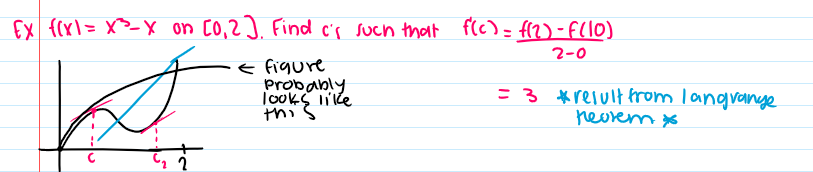 Ex f(x) = x³-x on [0,2]. Find c's such that f'(c) = f(2) - f(0)
2-0
← figure
probably
looks like
this
= 3 *result from langrange
theorem *
c c₂ 2